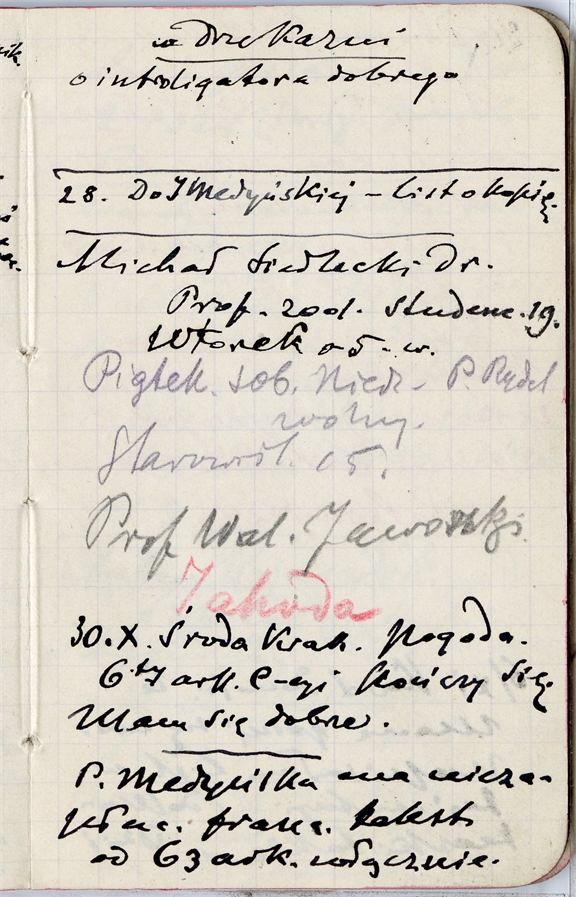 w Drukarni
o introligatora dobrego
28. Do JMedyńskiej – list o kopię.
Michał Siedlecki Dr.
Prof. zool. Studenc. 19.
Wtorek o 5. w.
Piątek. Sob. Niedz. P. Rydel
wolny.
Starowiśl. 15.
Prof Wal. Jaworski
Jahoda
30.X. Środa Krak. Pogoda.
ark. kończy się
Mam się dobrze.
P. Medyńska ma
franc. tekst
od 63 ark. włącznie.